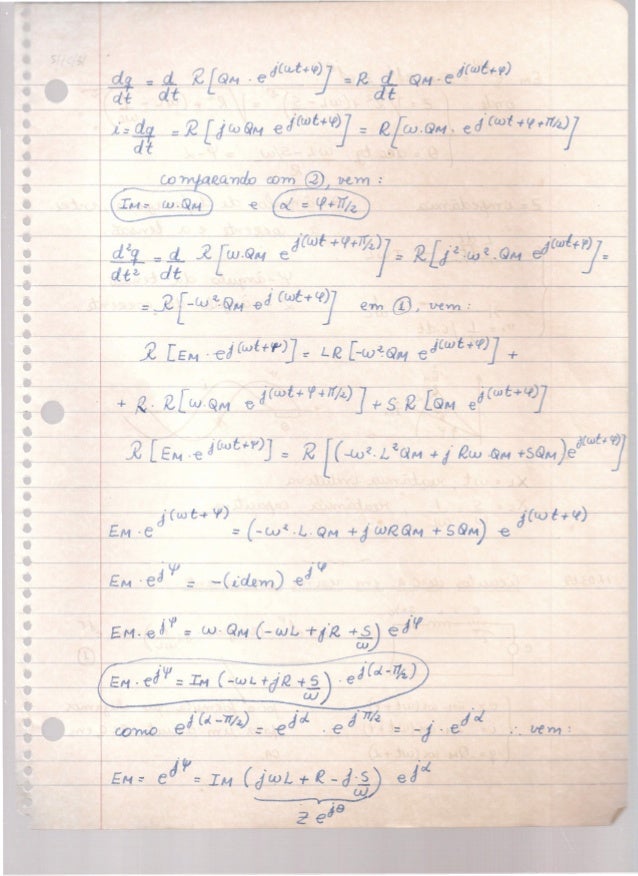 dq/dt = d/dt R[QM · e^j(ωt+φ)] = R d/dt QM · e^j(ωt+φ)
i = dq/dt = R[jω QM e^j(ωt+φ)] = R[ω·QM · e^j(ωt+φ+π/2)]
comparando com ②, vem:
IM = ω·QM e α = φ+π/2
d²q/dt² = d/dt R[ω·QM e^j(ωt+φ+π/2)] = R[j²·ω²·QM e^j(ωt+φ)] =
= R[-ω²·QM e^j(ωt+φ)] em ①, vem:
R[EM · e^j(ωt+ψ)] = LR[-ω²·QM e^j(ωt+φ)] +
+ R· R[ω·QM e^j(ωt+φ+π/2)] + S R[QM e^j(ωt+φ)]
R[EM · e^j(ωt+ψ)] = R[(-ω²·L²QM + j Rω QM + SQM)e^j(ωt+φ)]
EM · e^j(ωt+ψ) = (-ω²·L·QM + jωRQM + SQM) e^j(ωt+φ)
EM · e^jψ = -(idem) e^jφ
EM · e^jψ = ω·QM (-ωL + jR + S/ω) e^jφ
EM · e^jψ = IM (-ωL + jR + S/ω) · e^j(α-π/2)
como e^j(α-π/2) = e^jα · e^jπ/2 = -j · e^jα ∴ vem:
EM = e^jψ = IM (jωL + R - j·S/ω) e^jα
Z e^jθ